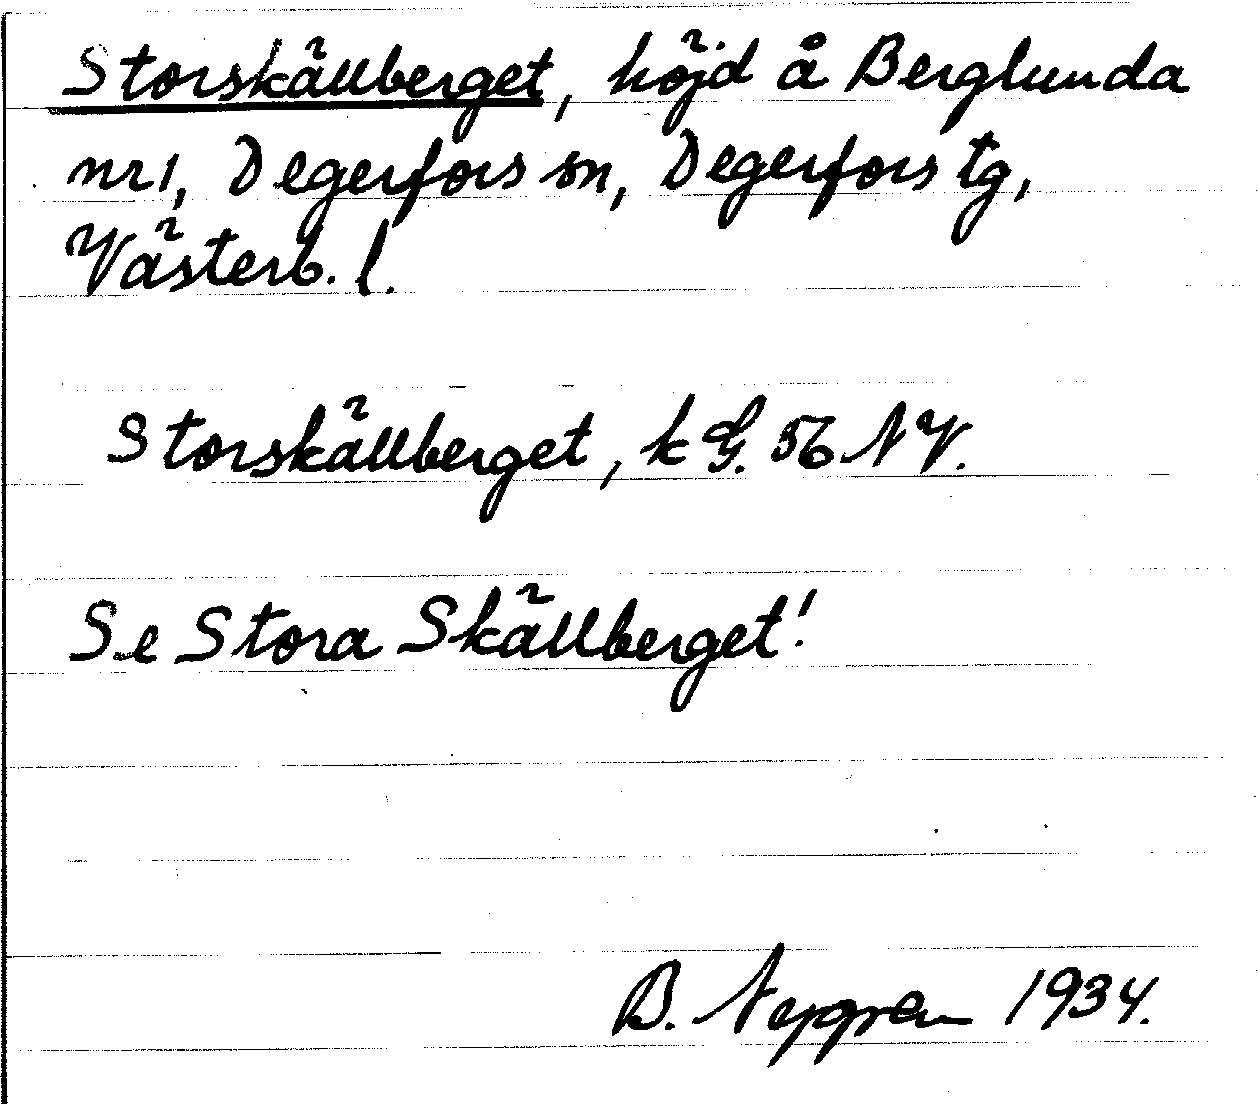 Storskällberget, höjd å Berglunda
nr 1, Degerfors sn, Degerfors tg,
Västerb. l.
Storskällberget, k G. 56 NV.
Se Stora Skällberget!
B. 1934.